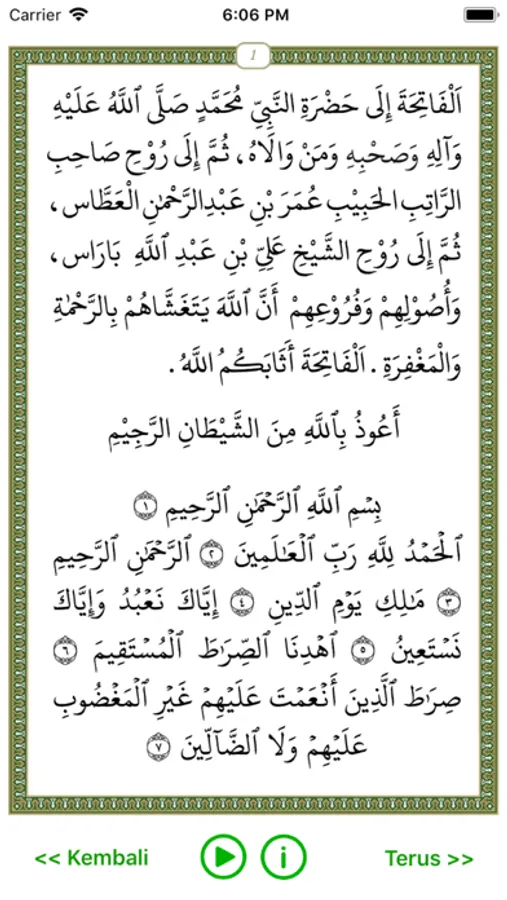 Carrier 6:06 PM
1
اَلْفَاتِحَةَ إِلَى حَضْرَةِ النَّبِيِّ مُحَمَّدٍ صَلَّى ٱللَّهُ عَلَيْهِ
وَآلِهِ وَصَحْبِهِ وَمَنْ وَالَاهُ، ثُمَّ إِلَى رُوْحِ صَاحِبِ
الرَّاتِبِ الحَبِيْبِ عُمَرَ بْنِ عَبْدِالرَّحْمٰنِ الْعَطَّاس،
ثُمَّ إِلَى رُوْحِ الشَّيْخِ عَلِيِّ بْنِ عَبْدِ ٱللَّهِ بَارَاس،
وَأُصُوْلِهِمْ وَفُرُوْعِهِمْ أَنَّ ٱللَّهَ يَتَغَشَّاهُمْ بِالرَّحْمَةِ
وَالْمَغْفِرَةِ . اَلْفَاتِحَةَ أَثَابَكُمُ اللَّهُ .
أَعُوذُ بِٱللَّهِ مِنَ الشَّيْطَانِ الرَّجِيْمِ
بِسْمِ ٱللَّهِ ٱلرَّحْمَٰنِ ٱلرَّحِيمِ ١
ٱلْحَمْدُ لِلَّهِ رَبِّ ٱلْعَٰلَمِينَ ٢ ٱلرَّحْمَٰنِ ٱلرَّحِيمِ
٣ مَٰلِكِ يَوْمِ ٱلدِّينِ ٤ إِيَّاكَ نَعْبُدُ وَإِيَّاكَ
نَسْتَعِينُ ٥ ٱهْدِنَا ٱلصِّرَٰطَ ٱلْمُسْتَقِيمَ ٦
صِرَٰطَ ٱلَّذِينَ أَنْعَمْتَ عَلَيْهِمْ غَيْرِ ٱلْمَغْضُوبِ
عَلَيْهِمْ وَلَا ٱلضَّآلِّينَ ٧
<< Kembali i Terus >>